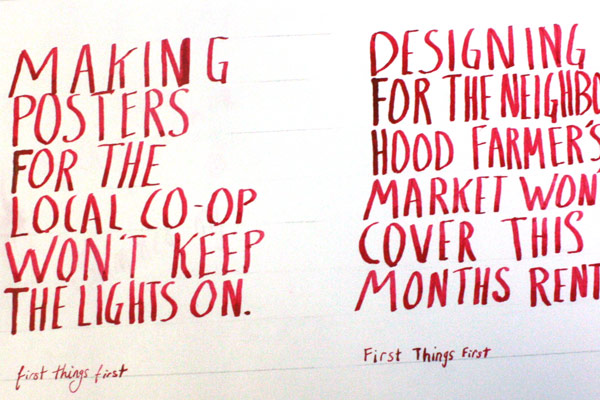 MAKING
POSTERS
FOR THE
LOCAL CO-OP
WON'T KEEP
THE LIGHTS ON.
first things first
DESIGNING
FOR THE NEIGHBO
HOOD FARMER'S
MARKET WON'
COVER THIS
MONTHS RENT
First Things First